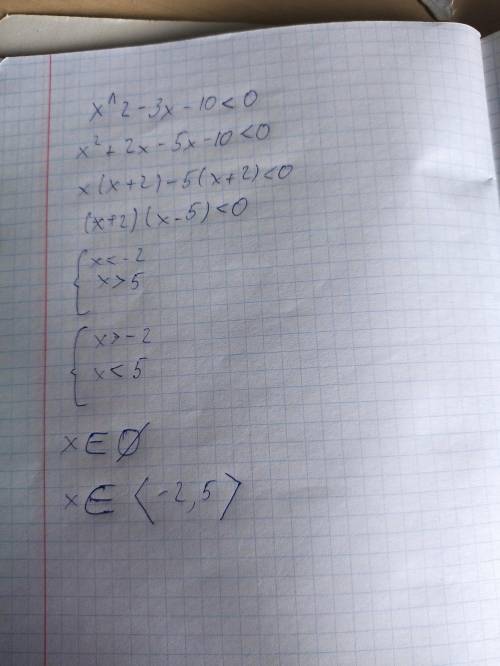 x^2-3x-10<0
x²+2x-5x-10<0
x(x+2)-5(x+2)<0
(x+2)(x-5)<0
{x<-2
x>5
{x>-2
x<5
x∈∅
x∈⟨-2,5⟩